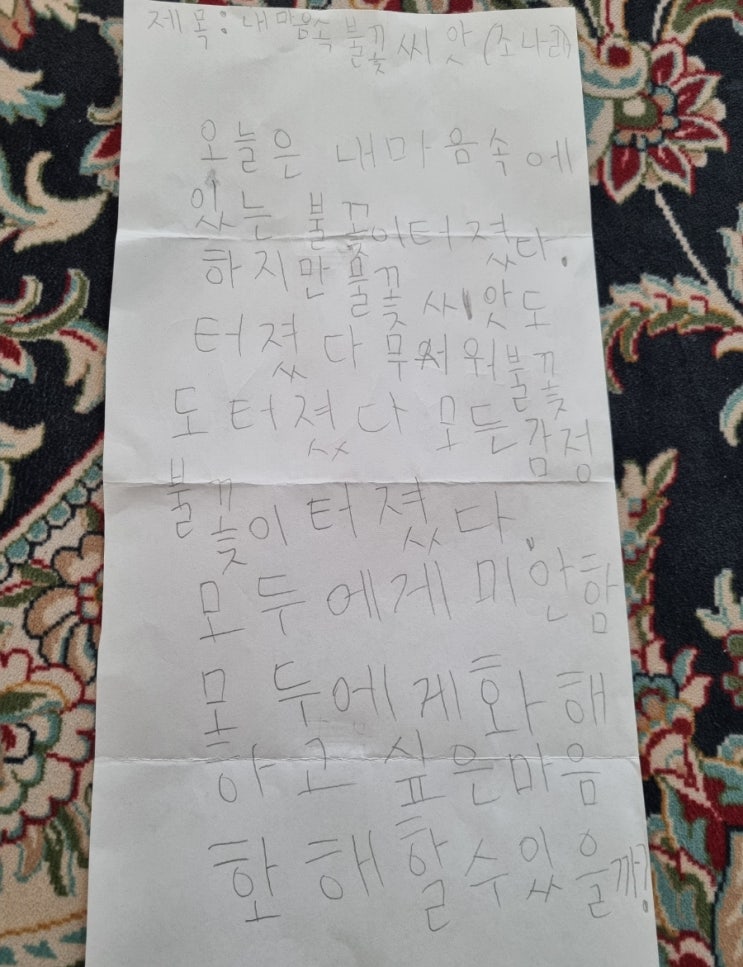 제목: 내마음속 불꽃씨앗 (조나래)
오늘은 내마음속에
있는 불꽃이터졌다.
하지만 불꽃씨앗도
터졌다 무서워불꽃
도터졌다 모든감정
불꽃이터졌다.
모두에게미안함
모두에게화해
하고싶은마음
화해할수있을까?